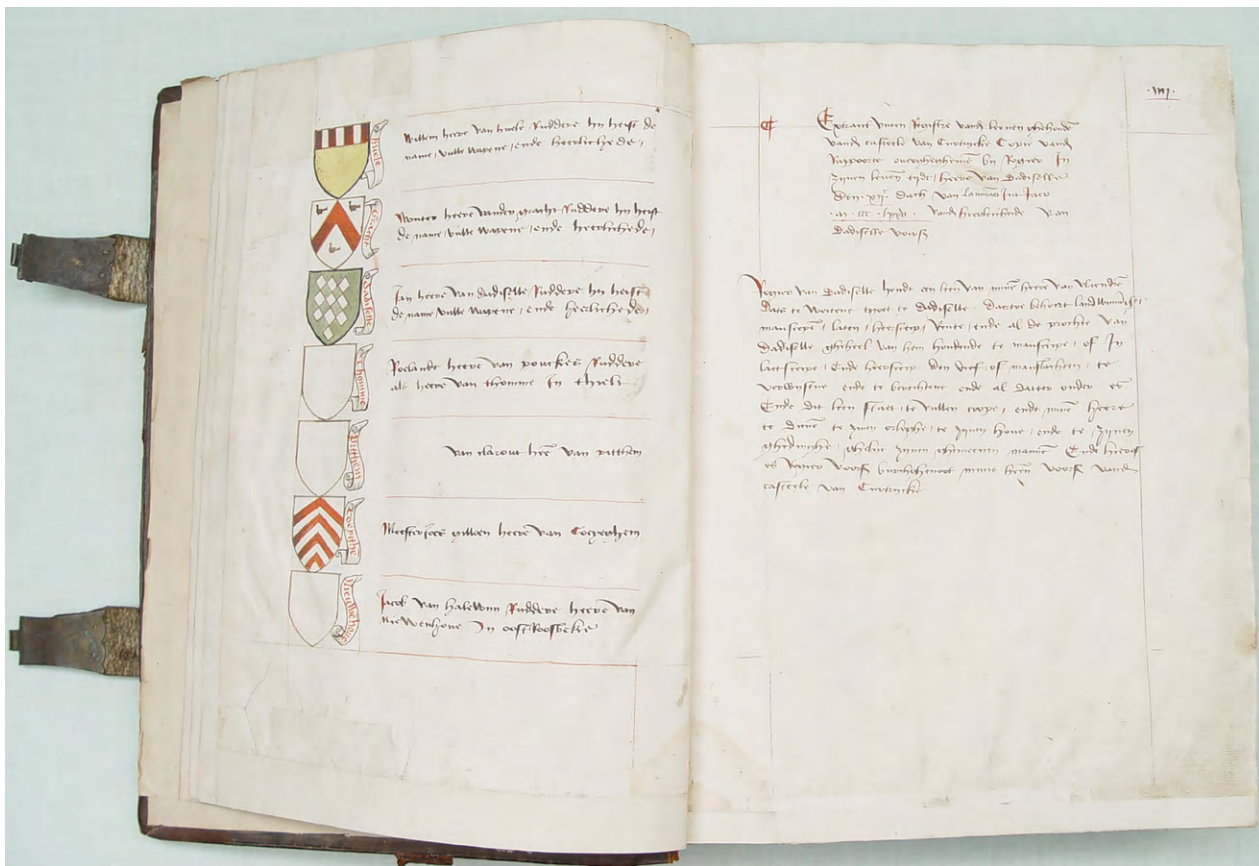 huele
Willem heere van huele Ruddere hy heeft de
name, vulle wapene, ende heerlichede,
Wouter heere vander gracht Ruddere hy heeft
de name, vulle wapene, ende heerlichede,
Dadiselle
Jan heere van dadiselle, Ruddere hy heeft
de name, vulle wapene, ende heerlichede,
thomme
Roelandt heere van poucke Ruddere
als heere van thomme in thielt
Pitthem
van clarout heere van pitthem
Meester van Coeyeghem
Jacob van halewyn Ruddere heere van
Niewenhove In oost Roosbeke
·iiij·
Extraict uuten Registre vande leenen ghehouden
vanden casteele van Curtrycke Copie vanden
Rapporte overghegheven by Rogier In
zynen leven tyde, heere van Dadiselle
Den xij dach van
vande heerlichede van
Dadiselle voors
Rogier van Dadiselle houdt een leen van mynen heere van vlaendren
Dats te wetene tgoet te Dadiselle daertoe behoort landt
manscepe, laten, heerscip, Rente, ende al de prochie van
Dadiselle gheheel van hem houdende te manscepe, of In
laetscepe, Ende heerscip den dief of manslachten, te
ende te berechtene ende al datter onder es
Ende dit leen staet, te vullen coope, ende mynen heere
te dienene te zynen orloghe, te zynen hove, ende te zynen
ghedinghe, ghelic zynen ghemeenen mannen Ende hierof
es Rogier voors myns heeren voors vanden
casteele van Curtrycke